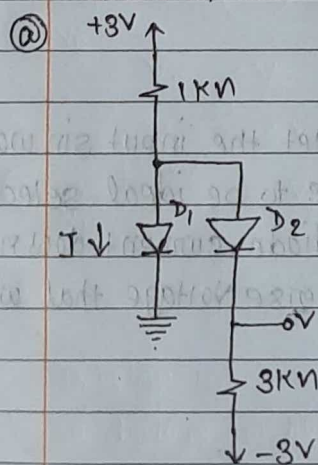 ⓐ +3V
1KΩ
D1 D2
I
V
3KΩ
-3V